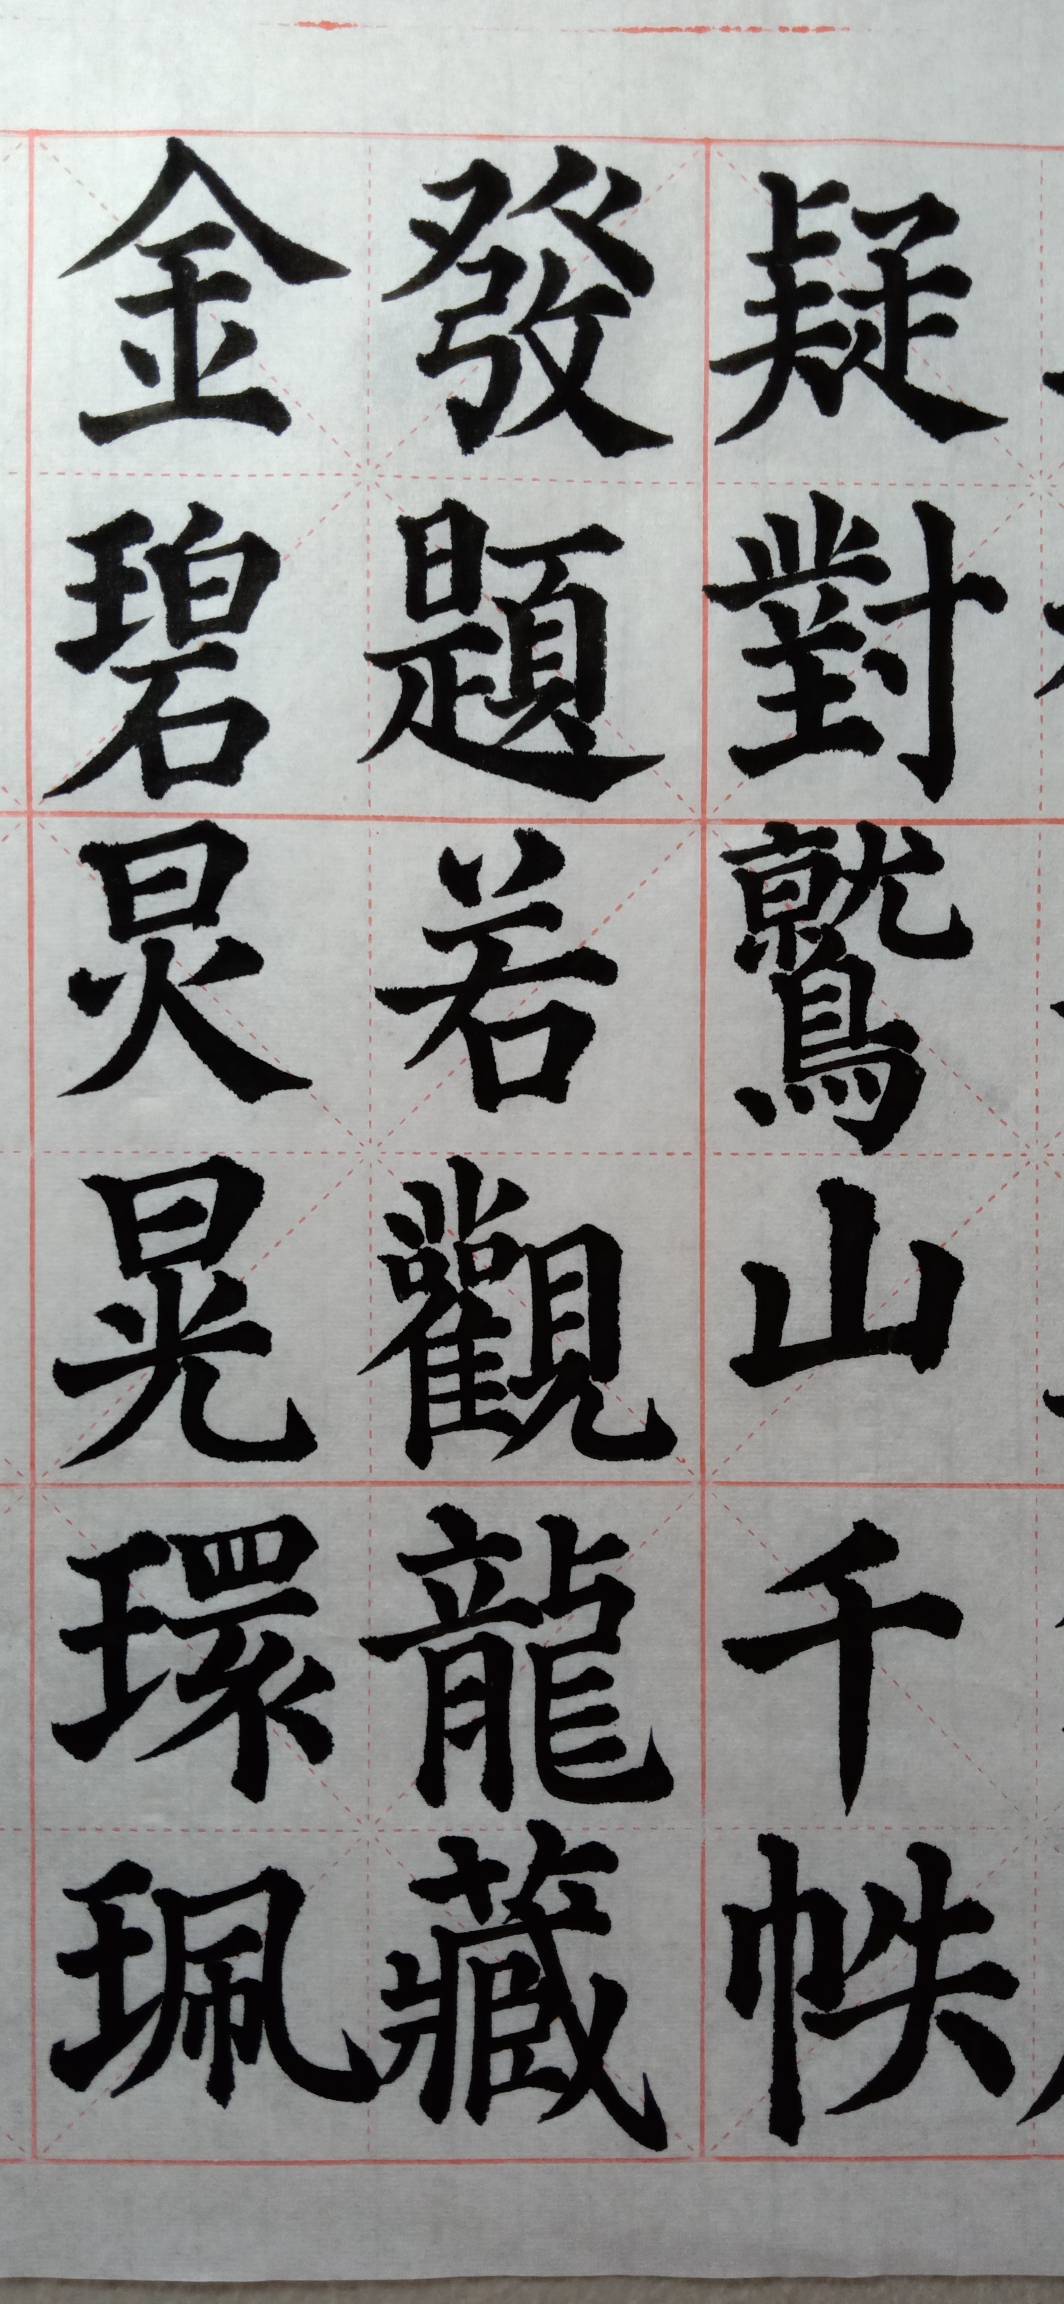 疑對鷲山千帙
發題若觀龍藏
金碧炅晃環珮